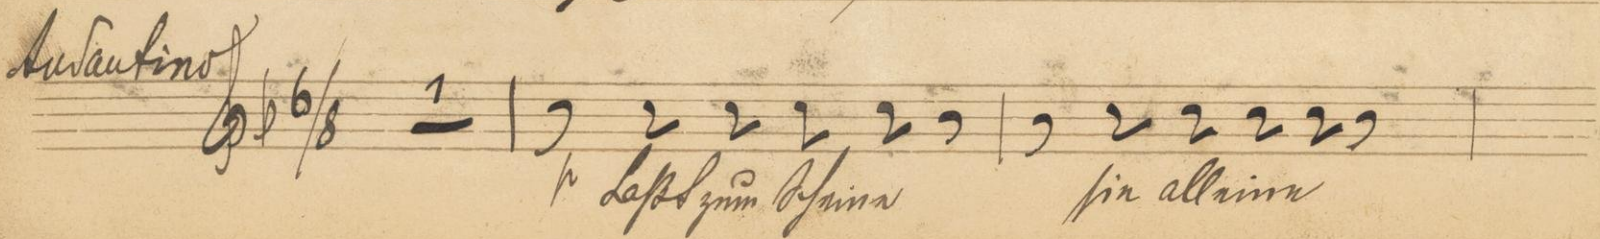 Andantino
6/8 1
p Laßt zum Scheine sie alleine